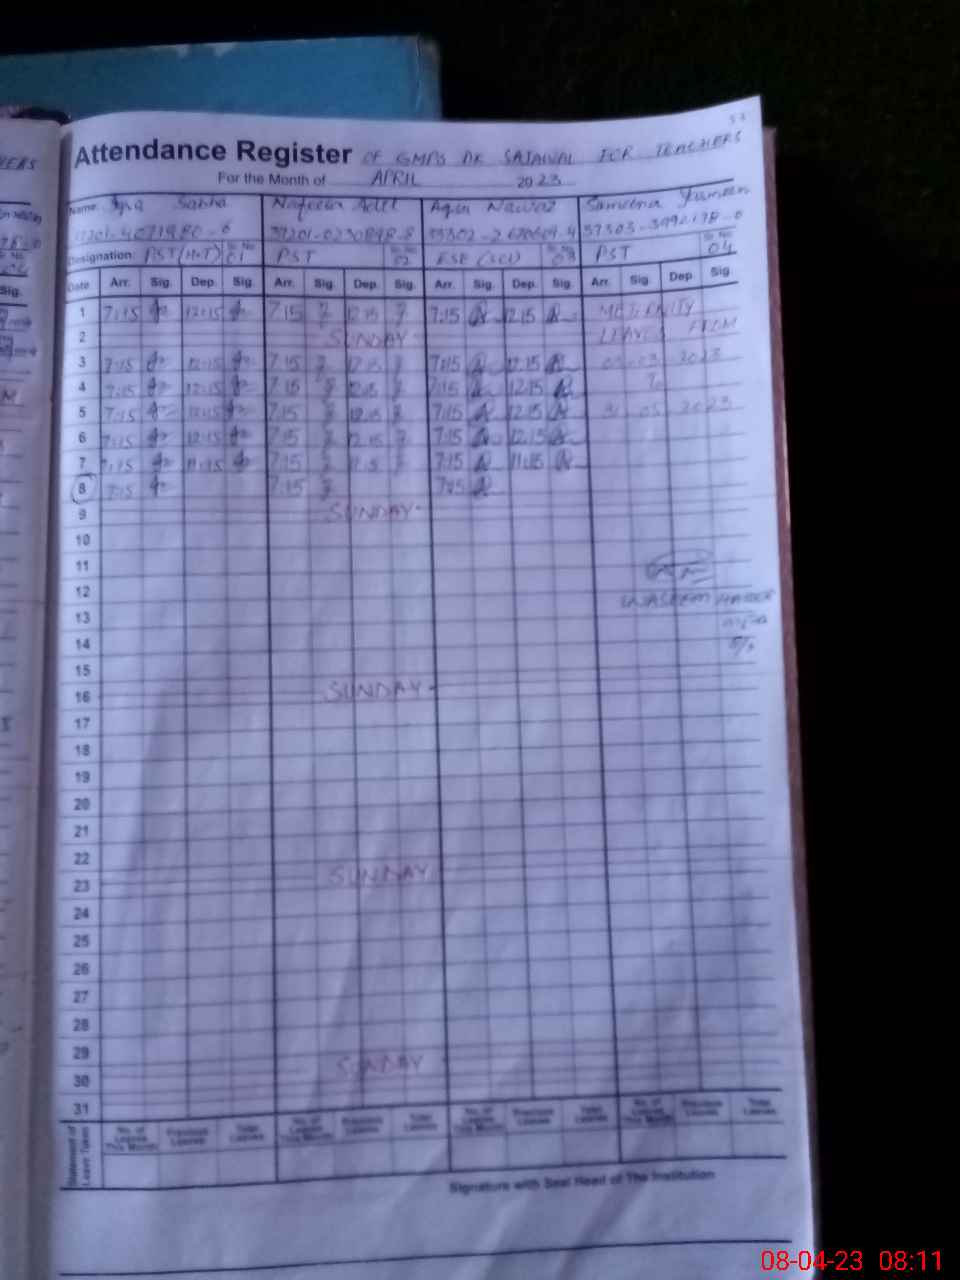 53
Attendance Register OF GMPS DK SAJAWAL FOR TEACHERS
For the Month of APRIL 2023
Name: Iqra Sabha Nafeesa Adel Aqsa Nawaz Sameena Yasmeen
Designation: PST (H.T) Sr. No 01 PST Sr. No 02 ESE (SCI) Sr. No 03 PST Sr. No 04
Date Arr. Sig. Dep. Sig. Arr. Sig. Dep. Sig. Arr. Sig. Dep. Sig. Arr. Sig. Dep. Sig.
1 7:15 12:15 7:15 12:15 7:15 12:15 METERNITY
2 SUNDAY LEAVES FROM
3 7:15 12:15 7:15 12:15 7:15 12:15 03-03-2023
4 7:15 12:15 7:15 12:15 7:15 12:15 To
5 7:15 12:15 7:15 12:15 7:15 12:15 31 05 2023
6 7:15 12:15 7:15 12:15 7:15 12:15
7 7:15 11:15 7:15 11:15 7:15 11:15
8 7:15 7:15 7:15
9 SUNDAY
10
11
12 WASEEM HAIDER
13
14
15
16 SUNDAY
17
18
19
20
21
22
23 SUNDAY
24
25
26
27
28
29
30 SUNDAY
31
Statement of Leave Taken No. of Leaves This Month Previous Leaves Total Leaves No. of Leaves This Month Previous Leaves Total Leaves No. of Leaves This Month Previous Leaves Total Leaves No. of Leaves This Month Previous Leaves Total Leaves
Signature with Seal Head of The Institution
08-04-23 08:11